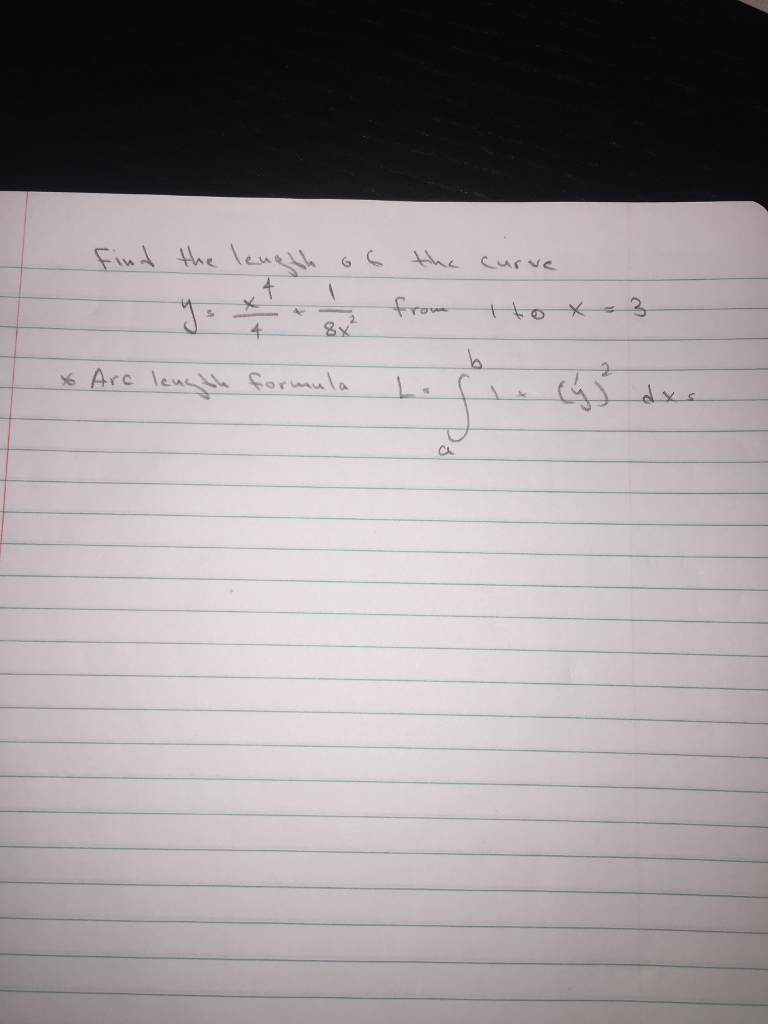 Find the length of the curve
y = x^4/4 + 1/8x^2 from 1 to x = 3
* Arc length formula L = ∫_a^b 1 + (y')^2 dx =